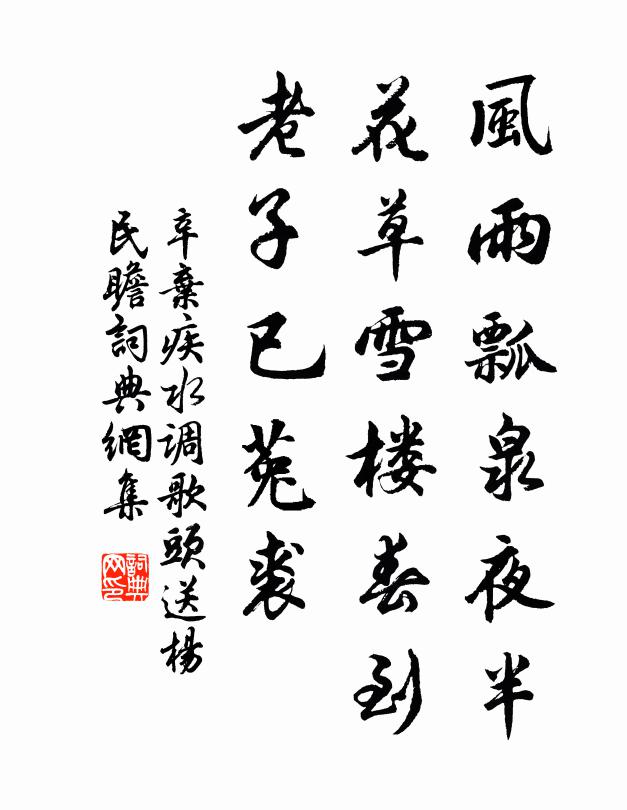 風雨瓢泉夜半
花草雪楼春到
老子已菟裘
辛棄疾水调歌頭送楊
民瞻詞典網集
詞典
网印